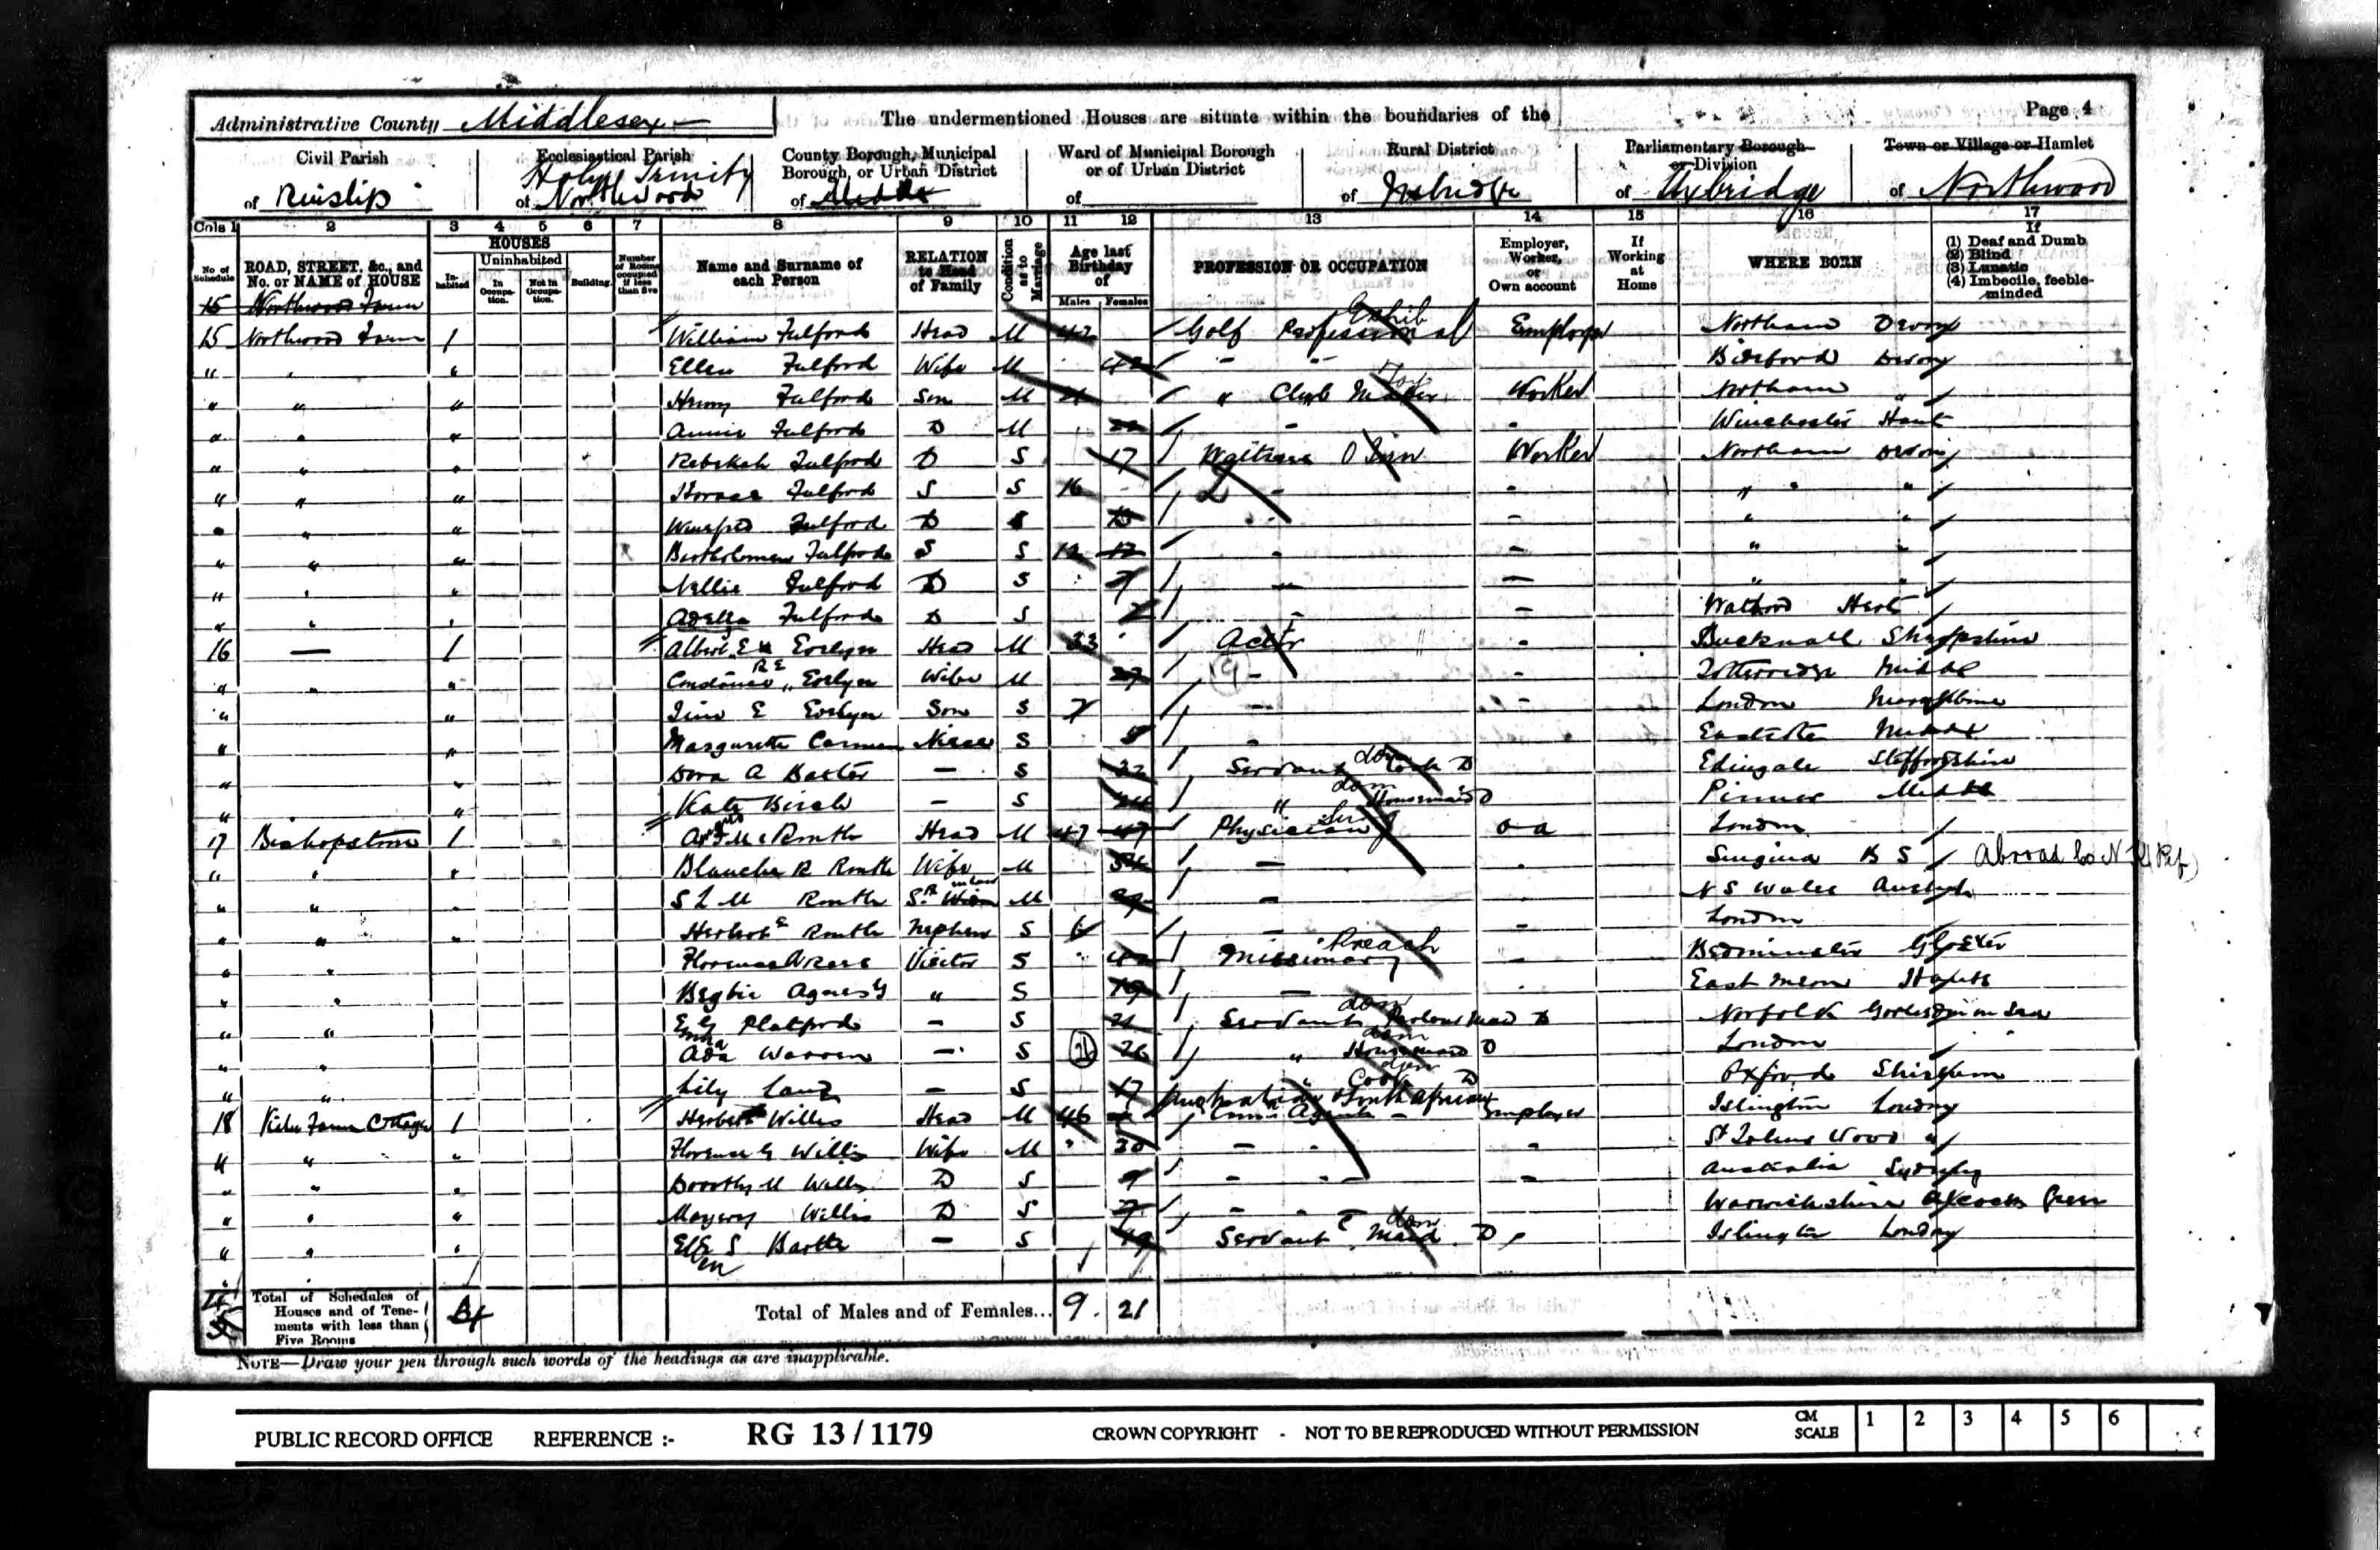 Administrative County Middlesex
The undermentioned Houses are situate within the boundaries of the
Page 4
Civil Parish of Ruislip
Ecclesiastical Parish of Holy Trinity Northwood
County Borough, Municipal Borough, or Urban District of
Ward of Municipal Borough or of Urban District of
Rural District of Uxbridge
Parliamentary Borough or Division of Uxbridge
Town or Village or Hamlet of Northwood
Cols 1 2 3 4 5 6 7 8 9 10 11 12 13 14 15 16 17
No of Schedule
ROAD, STREET, &c., and No. or NAME of HOUSE
HOUSES
Inhabited
Uninhabited
In Occupation.
Not in Occupation.
Building.
Number of Rooms occupied if less than five
Name and Surname of each Person
RELATION to Head of Family
Condition as to Marriage
Age last Birthday of
Males Females
PROFESSION OR OCCUPATION
Employer, Worker, or Own account
If Working at Home
WHERE BORN
If
(1) Deaf and Dumb
(2) Blind
(3) Lunatic
(4) Imbecile, feeble-minded
15 Northwood Farm
15 Northwood Farm 1 William Fulford Head M 42 Golf Professional Employer Northam Devon
" " Ellen Fulford Wife M 42 Bideford Devon
" " " Fulford Son M 21 " Club Maker Worker Northam "
" " " Annie Fulford D M 22 - Winchester Hants
" " " Rebekah Fulford D S 17 Waitress Worker Northam Devon
" " " Horace Fulford S S 16 - - " " "
" " " Winifred Fulford D S - " "
" " " Bartholomew Fulford S S 12 12 - - " "
" " " Nellie Fulford D S 7 - - " "
" " " Adella Fulford D S 2 - - Watford Herts
16 — 1 Albert E Evelyn Head M 33 Actor - Bucknall Shropshire
" " " Constance R E Evelyn Wife M 27 - - Totteridge Middx
" " E Evelyn Son S 7 - - London Marylebone
" " Margarette Niece S
" " Dora A Baxter - S 22 Servant Cook D Edingale Staffordshire
" " Kate Birch - S 24 " Housemaid D Pinner Middx
17 Bishopstone 1 Routh Head M 47 47 Physician o a London
" " " Blanche R Routh Wife M - - B S Abroad to N
" " " S L M Routh M - N S Wales
" " " Herbert E Routh Nephew S 6 - - London
" " " Florence Visitor S 42 Missionary Preach - Bedminster Gloster
" " " Begbie Agnes G " S 19 - East Meon Hants
" " E G Platford - S 21 Servant Parlour Maid D Norfolk Gorleston on Sea
" " Ada Warren - S 26 26 " Housemaid D London
" " Lily - S 17 Cook D Oxford
18 Farm Cottage 1 Herbert Willis Head M 46 Australian & South African Agent Employer Islington London
" " " Florence G Willis Wife M 30 - - - St Johns Wood "
" " " Dorothy M Willis D S 9 - - - Australia Sydney
" " " Willis D S 7 - - Warwickshire Acocks Green
" " " S S 19 Servant Maid D Islington London
Total of Schedules of Houses and of Tenements with less than Five Rooms 4
Total of Males and of Females... 9 21
NOTE—Draw your pen through such words of the headings as are inapplicable.
PUBLIC RECORD OFFICE REFERENCE :- RG 13 / 1179 CROWN COPYRIGHT - NOT TO BE REPRODUCED WITHOUT PERMISSION
CM SCALE 1 2 3 4 5 6